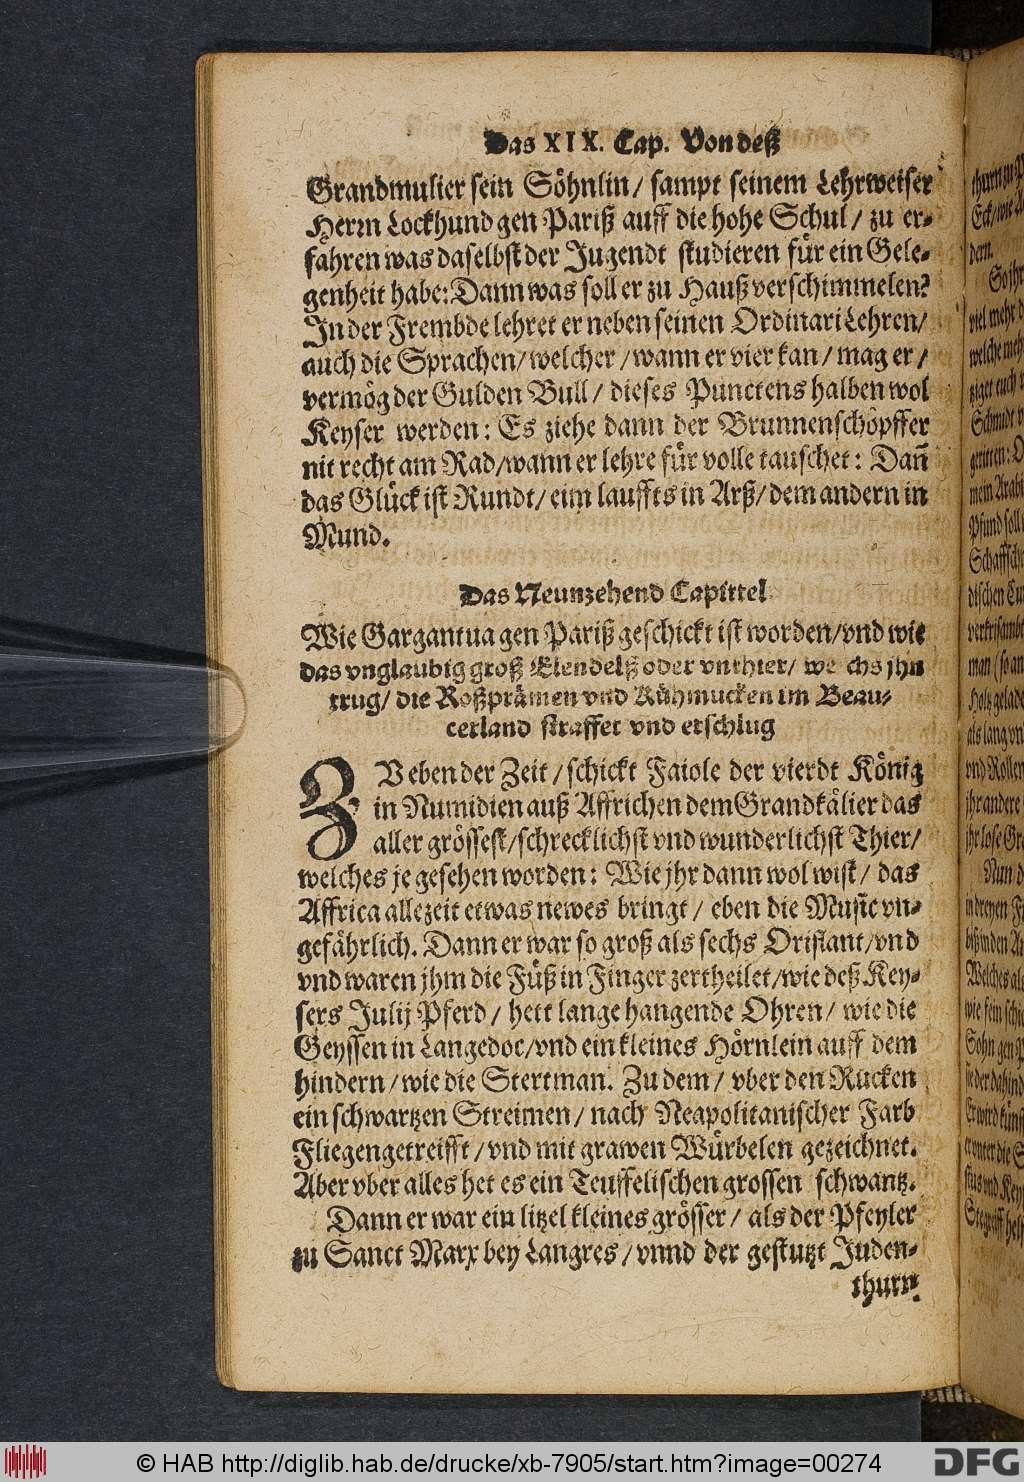 Das XIX. Cap. Von deß
Grandmulier sein Söhnlin / sampt seinem Lehrweiser
Herrn Lockhund gen Pariß auff die hohe Schul / zu er-
fahren was daselbst der Jugendt studieren für ein Gele-
genheit habe: Dann was soll er zu Hauß verschimmelen?
In der Frembde lehret er neben seinen Ordinari Lehren /
auch die Sprachen / welcher / wann er vier kan / mag er /
vermög der Gulden Bull / dieses Punctens halben wol
Keyser werden: Es ziehe dann der Brunnenschöpffer
nit recht am Rad / wann er lehre für volle tauschet: Dañ
das Glück ist Rundt / eim lauffts in Arß / dem andern in
Mund.
Das Neunzehend Capittel
Wie Gargantua gen Pariß geschickt ist worden / vnd wie
das vnglaubig groß Elendelß oder vnthier / we chs jhn
trug / die Roßprämen vnd Kühmucken im Beau-
cerland straffet vnd erschlug
ZV eben der Zeit / schickt Faiole der vierdt König
in Numidien auß Affrichen dem Grandkälier das
aller grössest / schrecklichst vnd wunderlichst Thier /
welches je gesehen worden: Wie jhr dann wol wist / das
Affrica allezeit etwas newes bringt / eben die Music vn-
gefährlich. Dann er war so groß als sechs Orislant / vnd
vnd waren jhm die Füß in Finger zertheilet / wie deß Key-
sers Julij Pferd / hett lange hangende Ohren / wie die
Geyssen in Langedoc / vnd ein kleines Hörnlein auff dem
hindern / wie die Stertman. Zu dem / vber den Rucken
ein schwartzen Streimen / nach Neapolitanischer Farb
Fliegengetreifft / vnd mit grawen Würbelen gezeichnet.
Aber vber alles het es ein Teuffelischen grossen schwantz.
Dann er war ein litzel kleines grösser / als der Pfeyler
zu Sanct Marx bey Langres / vnnd der gestutzt Juden-
thurn
© HAB http://diglib.hab.de/drucke/xb-7905/start.htm?image=00274
DFG